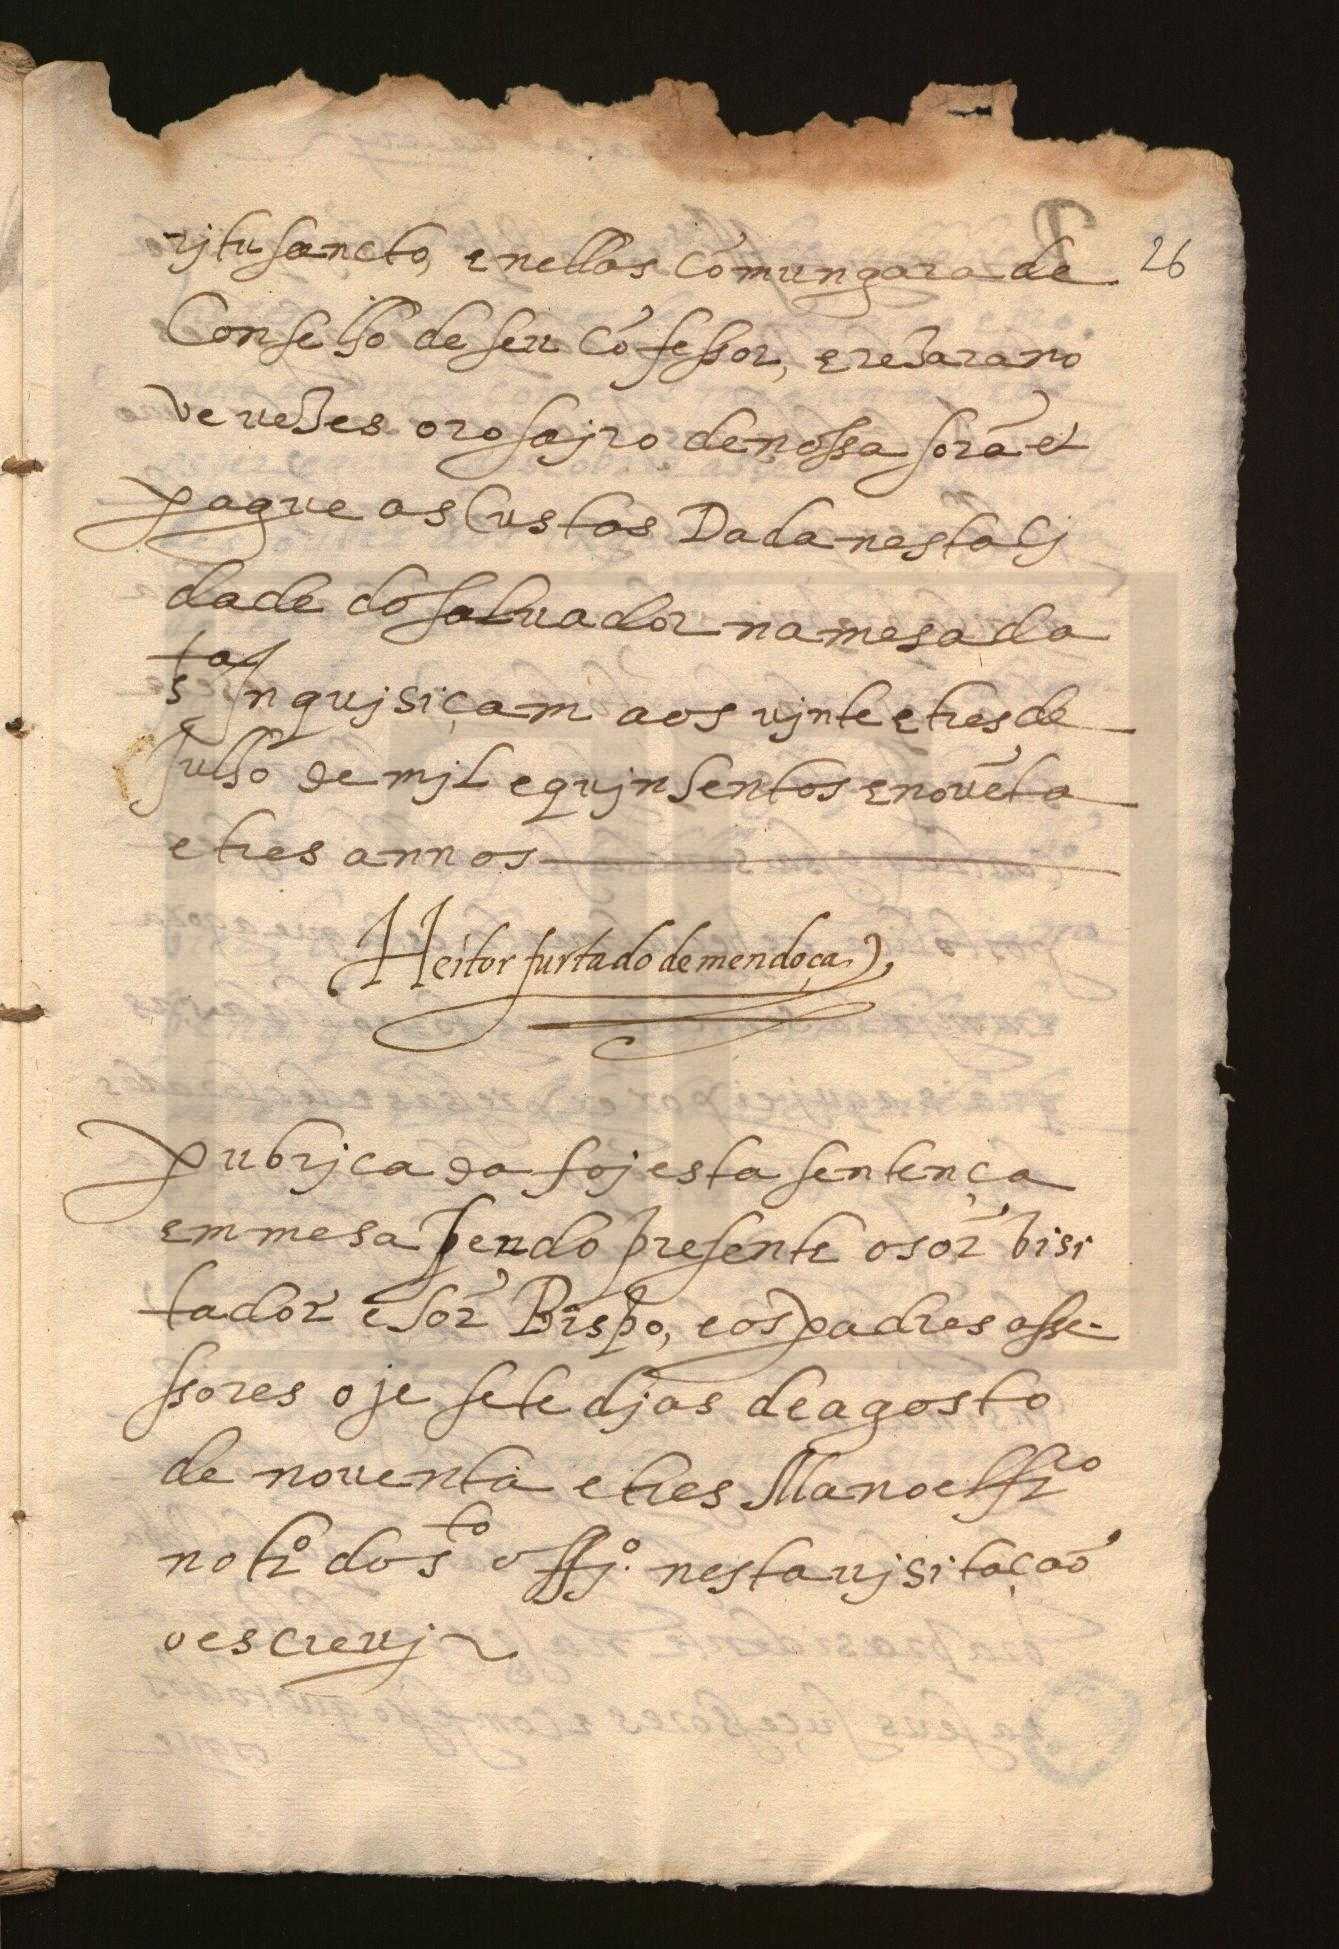 26
ritu sancto, e nellas cõmungara de
Conselho de seu Cõfessor, e rezara no
ve vezes o rosajro de nossa sorã et
pague as Custas Dada nesta Cj
dade do saluador na mesa da
sta Inqujsiçam aos vjnte e tres de
Julho de mjl e qujnhentos e novẽta
e tres annos
Heitor furtado de mendoça
pubrjcada foj esta sentença
em mesa sendo presente o sõr bisi
tador e sõr Bispo, e os padres asse-
ssores oje sete djas de agosto
de noventa e tres Manoel frco
notro do sto offjo. nesta vjsitação
o escrevj